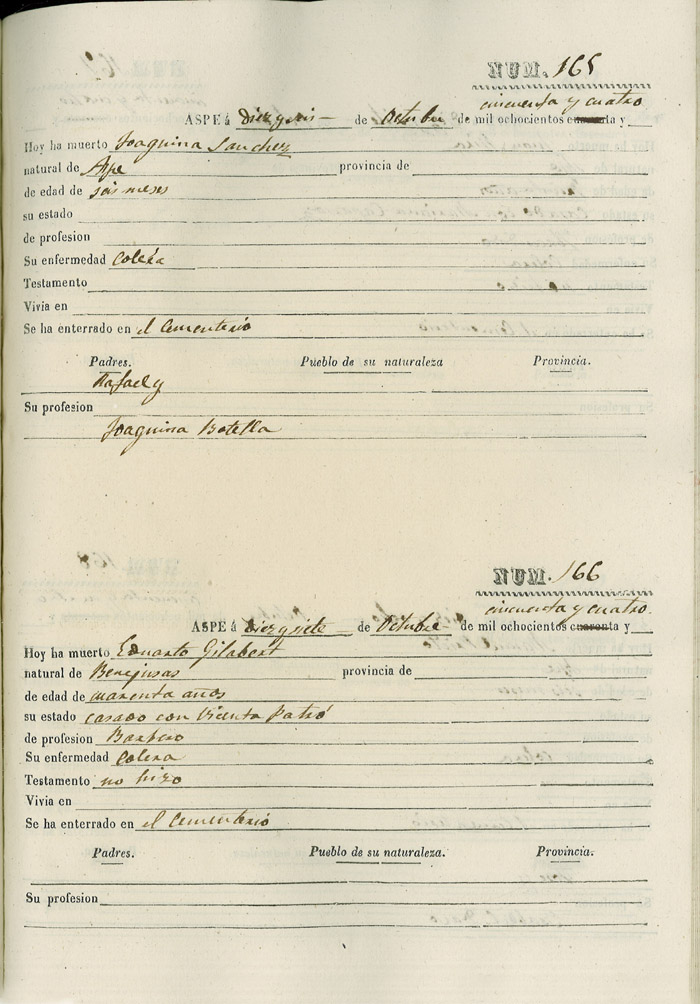 NUM. 165
cincuenta y cuatro
ASPE á diez y seis de Octubre de mil ochocientos cuarenta y
Hoy ha muerto Joaquina Sanchez
natural de Aspe provincia de
de edad de seis meses
su estado
de profesion
Su enfermedad Colera
Testamento
Vivia en
Se ha enterrado en el Cementerio
Padres. Pueblo de su naturaleza Provincia.
Rafael y
Su profesion
Joaquina Botella
NUM. 166
cincuenta y cuatro
ASPE á diez y siete de Octubre de mil ochocientos cuarenta y
Hoy ha muerto Eduarto Gilabert
natural de Benejusas provincia de
de edad de cuarenta años
su estado casado con Vicenta Patró
de profesion Barbero
Su enfermedad Colera
Testamento no hizo
Vivia en
Se ha enterrado en el Cementerio
Padres. Pueblo de su naturaleza. Provincia.
Su profesion